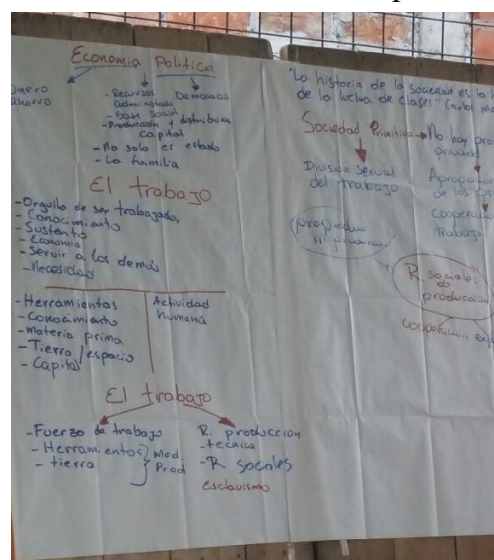 Economía Política
Dinero
Ahorro
- Recursos
Democracia
Administrados
- Social
- Producción y distribución
capital
- No solo es estado
- La familia
El trabajo
- Orgullo de ser trabajador
- Conocimiento
- Sustento
- Economía
- Servir a los demás
- Necesidad
- Herramientas
- Conocimiento
- materia prima
- Tierra / espacio
- Capital
Actividad
humana
El trabajo
- Fuerza de trabajo
- Herramientas
- tierra
Med.
Prod
R. producción
- técnica
- R sociales
esclavismo
"La historia de la sociedad es la
de la lucha de clases" Carlos
Sociedad Primitiva
No hay
privada
División sexual
del trabajo
de los
trabajo
R. sociales
de
producción